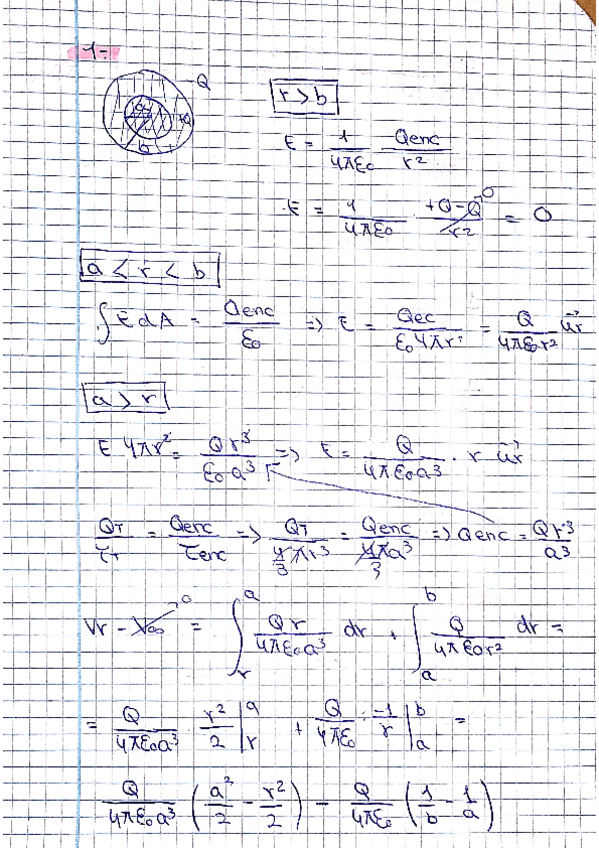 1-
-Q
a
+Q
b
r > b
E = 1/4πε0 Qenc/r²
E = 1/4πε0 · +Q-Q/r² → 0 = 0
a < r < b
∫ E dA = Qenc/ε0 => E = Qec/ε0 4πr² = Q/4πε0r² ur→
a > r
E 4πr² = Qr³/ε0a³ => E = Q/4πε0a³ · r ur→
QT/τT = Qenc/τenc => QT/(4/3 πr³) = Qenc/(4/3 πa³) => Qenc = Qr³/a³
Vr - V∞ → 0 = ∫_r^a Qr/4πε0a³ dr + ∫_a^b Q/4πε0r² dr =
= Q/4πε0a³ · r²/2 |_r^a + Q/4πε0 · -1/r |_a^b =
Q/4πε0a³ (a²/2 - r²/2) - Q/4πε0 (1/b - 1/a)